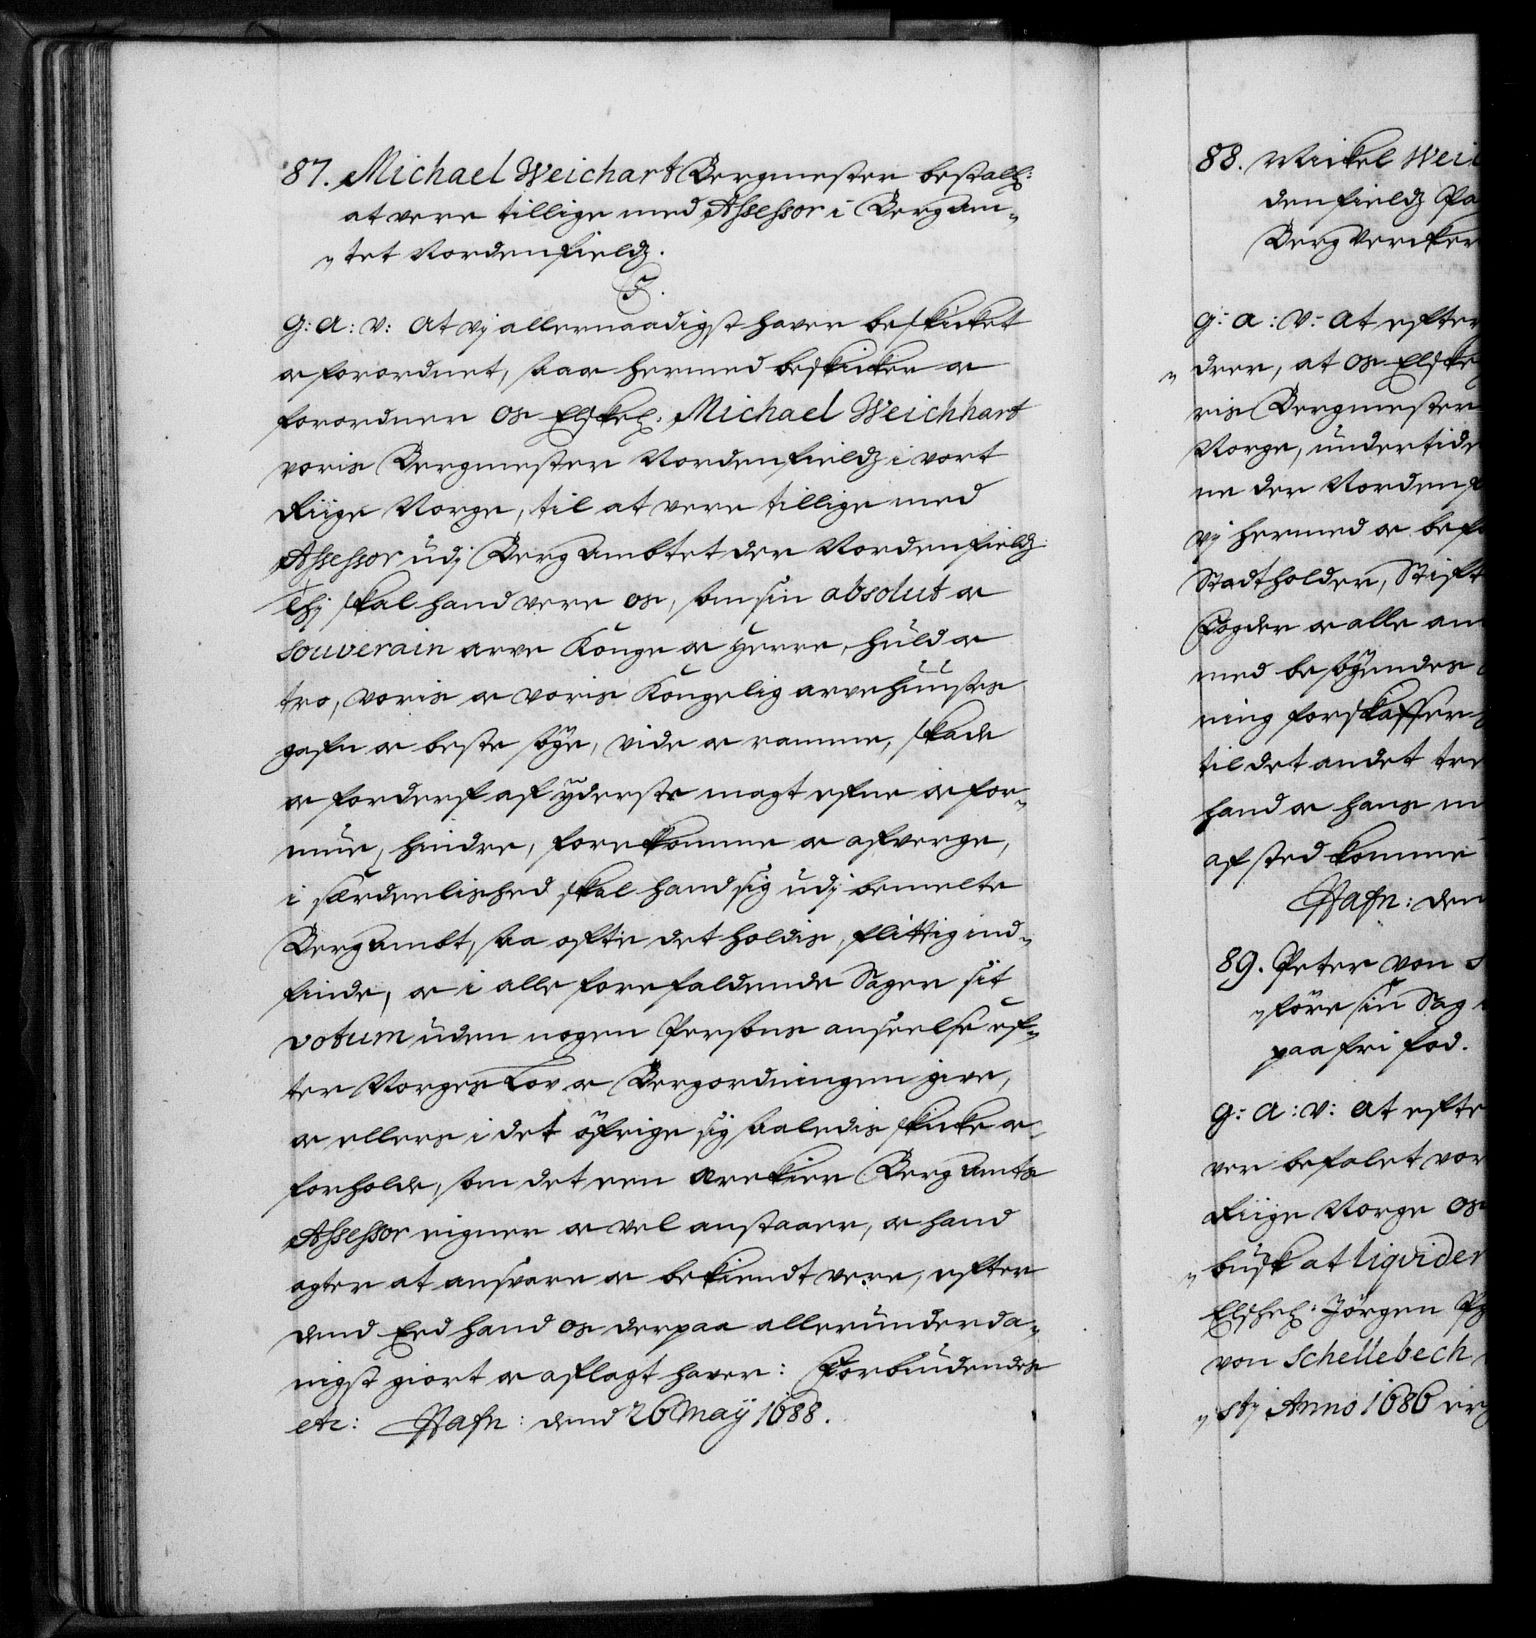 87. Michael Weichart Bergmester bestall:
at vere tillige med Assessor i Bergam„
„tet Nordenfields.
G: A: V: At vj allernaadigst haver beskicket
oc forordnet, saa oc hermed beskicker oc
forordner os Elskel. Michael Weichhart
voris Bergmester Nordenfields i vort
Riige Norge, til at vere tillige med
Assessor udj Berg Ambtet der Nordenfields
Thj skal hand vere os, som sin absolut oc
souverain arve Konge oc Herre, huld oc
tro, voris oc voris Kongelig arvehuuses
gafn oc beste søge, vide oc ramme, skade
oc forderf af yderste magt efne oc for„
mue, hindre, forekomme oc afverge,
i særdeelished skal hand sig udj bemelte
Berg Ambt, saa ofte det holdis, flittig ind„
finde, oc i alle forefaldende Sager sit
votum uden nogen Persons anseelse ef„
ter Norges Lov oc Bergordningen give,
oc ellers i det öfrige sig saaledis skicke oc
forholde, som det een ærekier Berg Amts
Assessor eigner oc vel anstaaer, oc hand
agter at ansvare oc bekiendt vere, efter
dend Eed hand os derpaa allerunderda„
nigst giort oc aflagt haver: Forbiudendes
etc: Hafn: dend 26 Maÿ 1688.
88. Mickel Wei
denfields Pa
Berg Vercker
G: A: V: At efter
„drer, at os Elske
ris Bergmester
Norge, undertide
ne der Nordenf
vj hermed oc bef
Stadtholder, Stift
Fogder oc alle an
med besøgendes
ning forskaffer
til det andet tre
hand oc hans m
af sted komme
Hafn: den
89. Peter von S
„före sin Sag
paa fri fod.
G: A: V: At efte
ver befalet vor
Riige Norge os
„busk at liqvider
Elskel: Jörgen P
von Schellebech
„stj Anno 1686 er